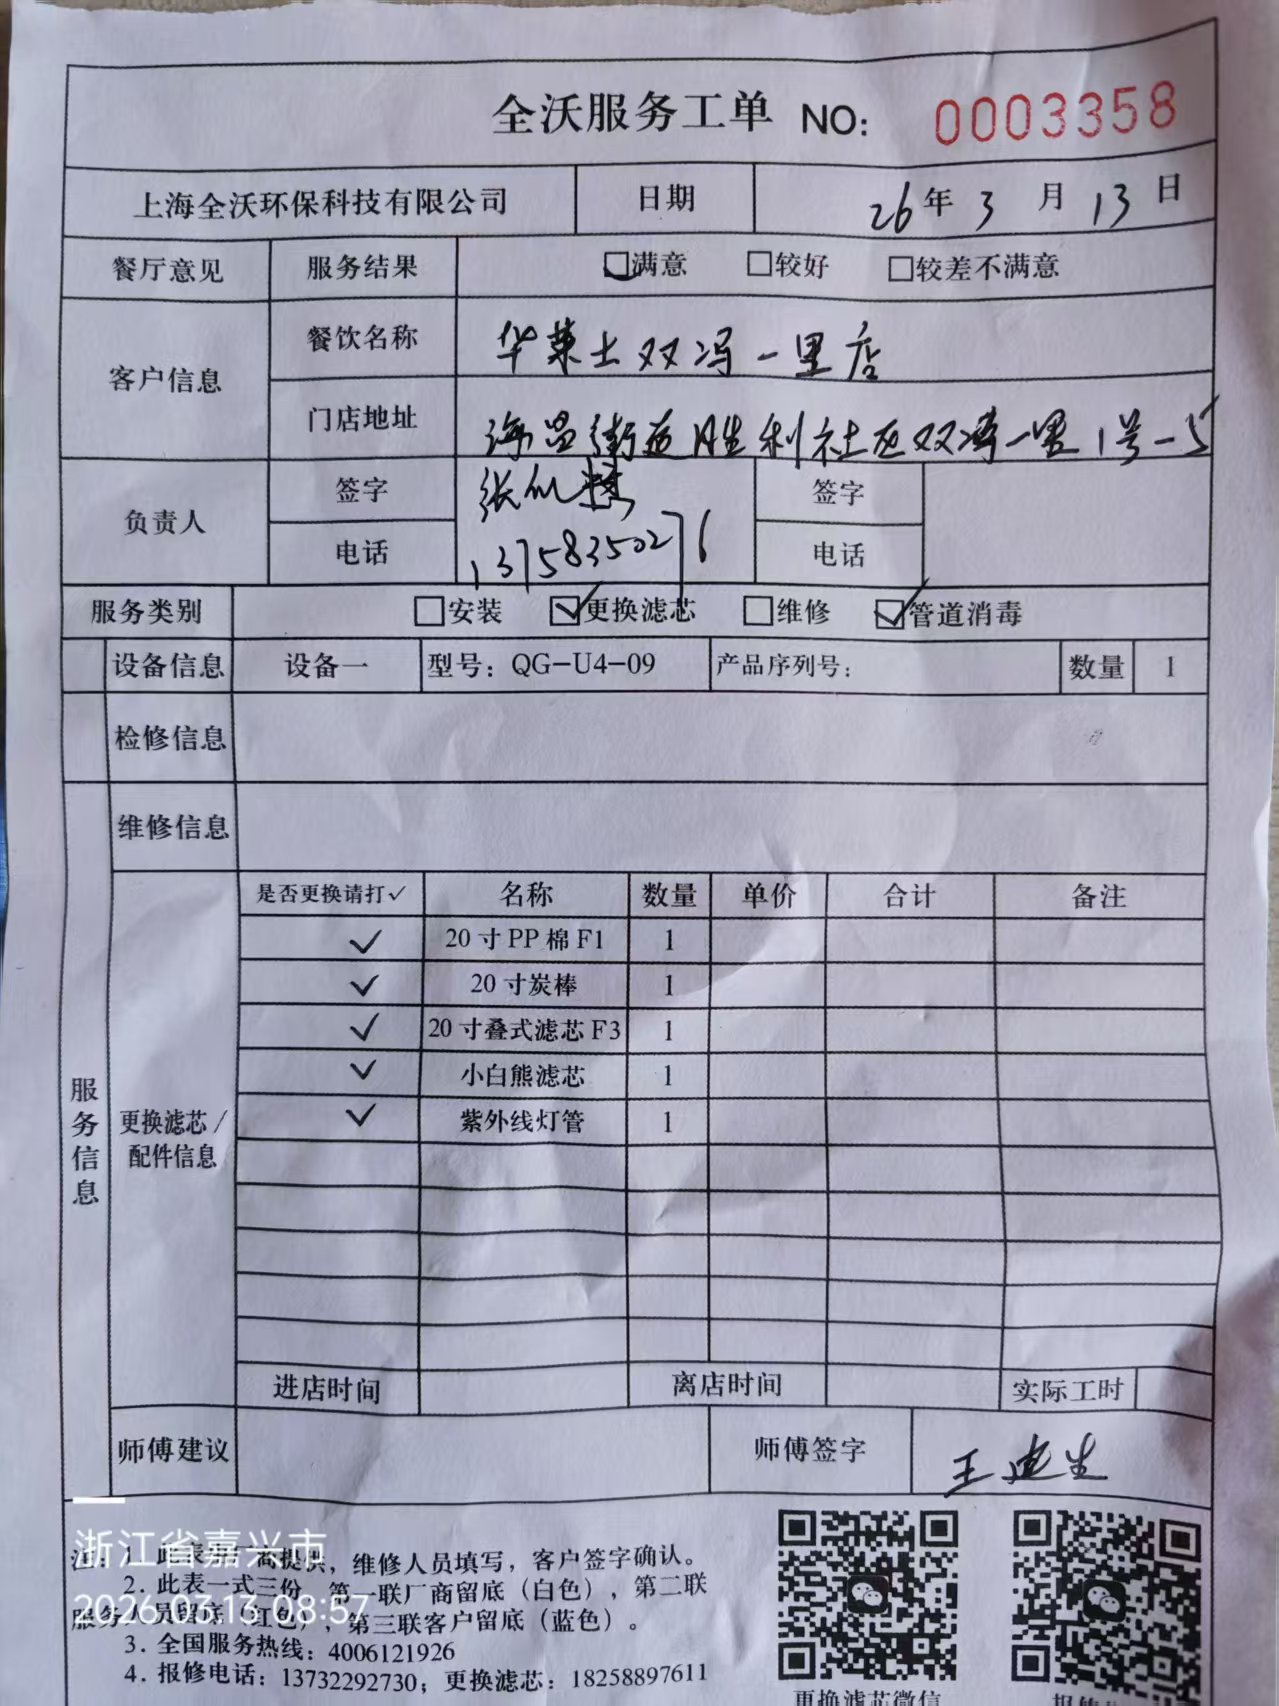 全沃服务工单 NO: 0003358
上海全沃环保科技有限公司 日期 26年3月13日
餐厅意见 服务结果 满意 较好 较差不满意
客户信息 餐饮名称 华莱士双冯一里店
门店地址 海昌街道胜利社区双冯一里1号-5
负责人 签字 张 签字
电话 13758350276 电话
服务类别 安装 更换滤芯 维修 管道消毒
设备信息 设备一 型号：QG-U4-09 产品序列号： 数量 1
检修信息
维修信息
是否更换请打✓ 名称 数量 单价 合计 备注
✓ 20寸PP棉F1 1
✓ 20寸炭棒 1
✓ 20寸叠式滤芯F3 1
✓ 小白熊滤芯 1
✓ 紫外线灯管 1
服务信息
更换滤芯/
配件信息
进店时间 离店时间 实际工时
师傅建议 师傅签字 王
注：1. 此表 厂商提供，维修人员填写，客户签字确认。
2. 此表一式三份，第一联厂商留底（白色），第二联
服务人员留底（红色），第三联客户留底（蓝色）。
3. 全国服务热线：4006121926
4. 报修电话：13732292730；更换滤芯：18258897611
更换滤芯微信
浙江省嘉兴市
2026.03.13 08:57